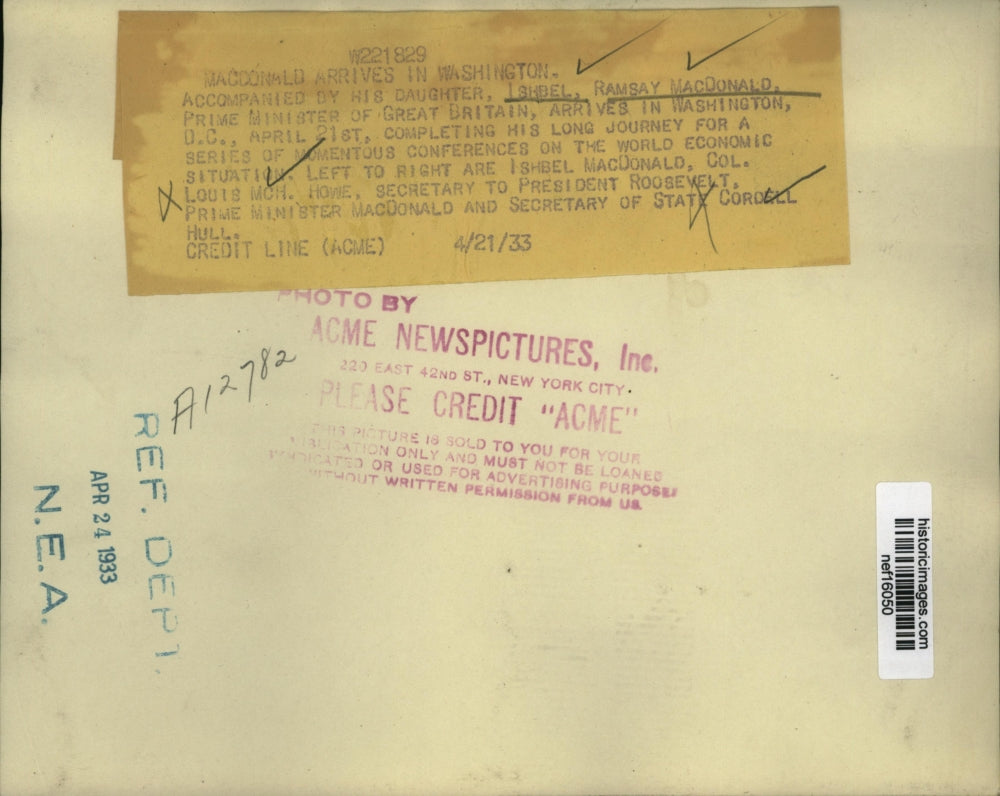 W221829
MACDONALD ARRIVES IN WASHINGTON.
ACCOMPANIED BY HIS DAUGHTER, ISHBEL, RAMSAY MACDONALD,
PRIME MINISTER OF GREAT BRITAIN, ARRIVES IN WASHINGTON,
D.C., APRIL 21ST, COMPLETING HIS LONG JOURNEY FOR A
SERIES OF MOMENTOUS CONFERENCES ON THE WORLD ECONOMIC
SITUATION. LEFT TO RIGHT ARE ISHBEL MACDONALD, COL.
LOUIS MCH. HOWE, SECRETARY TO PRESIDENT ROOSEVELT,
PRIME MINISTER MACDONALD AND SECRETARY OF STATE CORDELL
HULL.
CREDIT LINE (ACME) 4/21/33
PHOTO BY
ACME NEWSPICTURES, Inc.
220 EAST 42ND ST., NEW YORK CITY.
PLEASE CREDIT "ACME"
THIS PICTURE IS SOLD TO YOU FOR YOUR
PUBLICATION ONLY AND MUST NOT BE LOANED
SYNDICATED OR USED FOR ADVERTISING PURPOSES
WITHOUT WRITTEN PERMISSION FROM US.
A12782
REF. DEPT.
APR 24 1933
N.E.A.
historicimages.com
nef16050